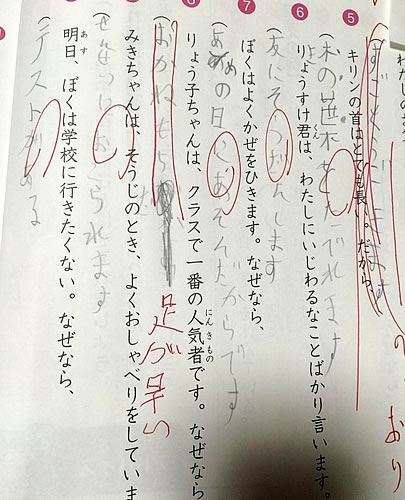 わたしのお
5
キリンの首はとても長い。だから、
木の葉をたべれます
6
りょうすけ君は、わたしにいじわるなことばかり言います。
友にそうだんします
7
ぼくはよくかぜをひきます。なぜなら、
あめの日にあそんだからです
りょう子ちゃんは、クラスで一番の人気者です。なぜなら
おかねもち
足が早い
みきちゃんは、そうじのとき、よくおしゃべりをしていま
おこられます
明日、ぼくは学校に行きたくない。なぜなら、
テストがある